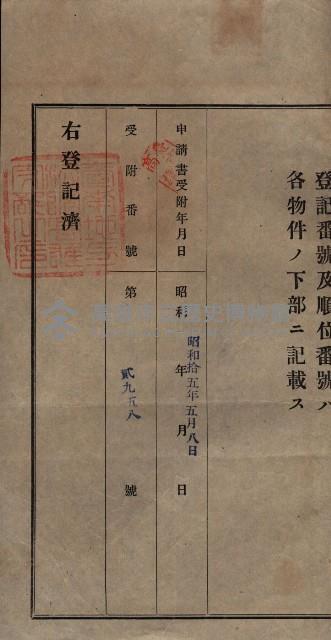 登記番號及順位番號ハ
各物件ノ下部ニ記載ス
申請書受附年月日 昭和 年 月 日
昭和拾五年五月八日
受附番號 第 貳九五八 號
右登記濟